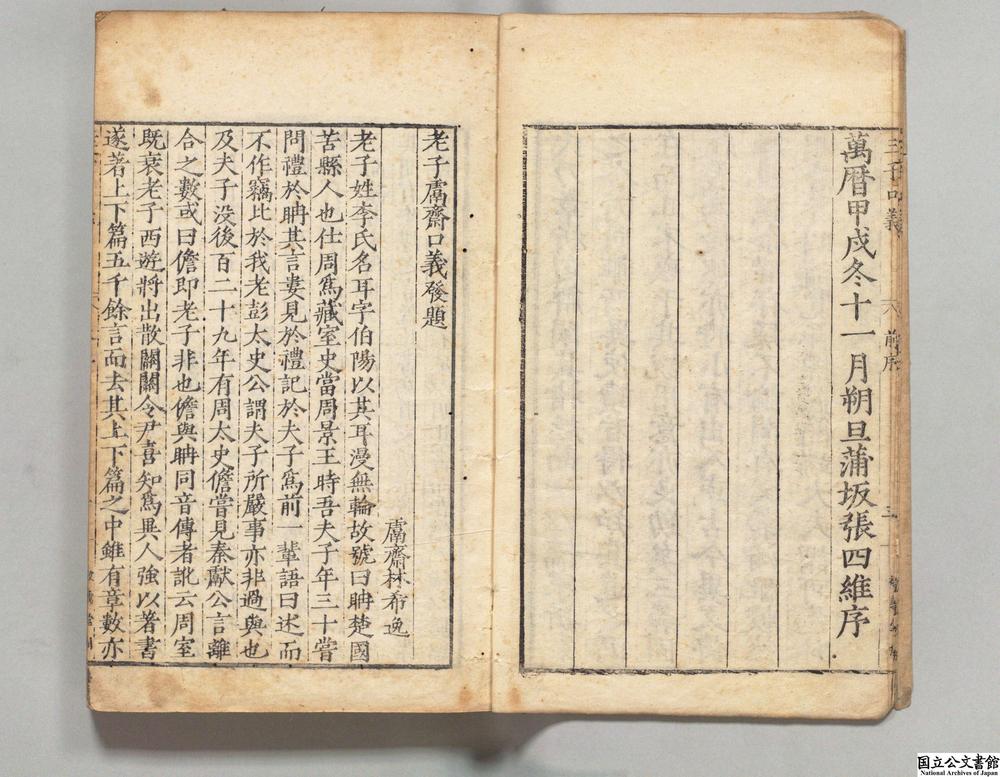 萬曆甲戌冬十一月朔旦蒲坂張四維序
三子口義
前序
三
老子鬳齋口義發題
鬳齋林希逸
老子姓李氏名耳字伯陽以其耳漫無輪故號曰聃楚國
苦縣人也仕周爲藏室史當周景王時吾夫子年三十嘗
問禮於聃其言婁見於禮記於夫子爲前一輩語曰述而
不作竊比於我老彭太史公謂夫子所嚴事亦非過與也
及夫子没後百二十九年有周太史儋嘗見秦獻公言離
合之數或曰儋即老子非也儋與聃同音傳者訛云周室
既衰老子西遊將出散關關令尹喜知爲異人強以著書
遂著上下篇五千餘言而去其上下篇之中雖有章數亦
国立公文書館
National Archives of Japan